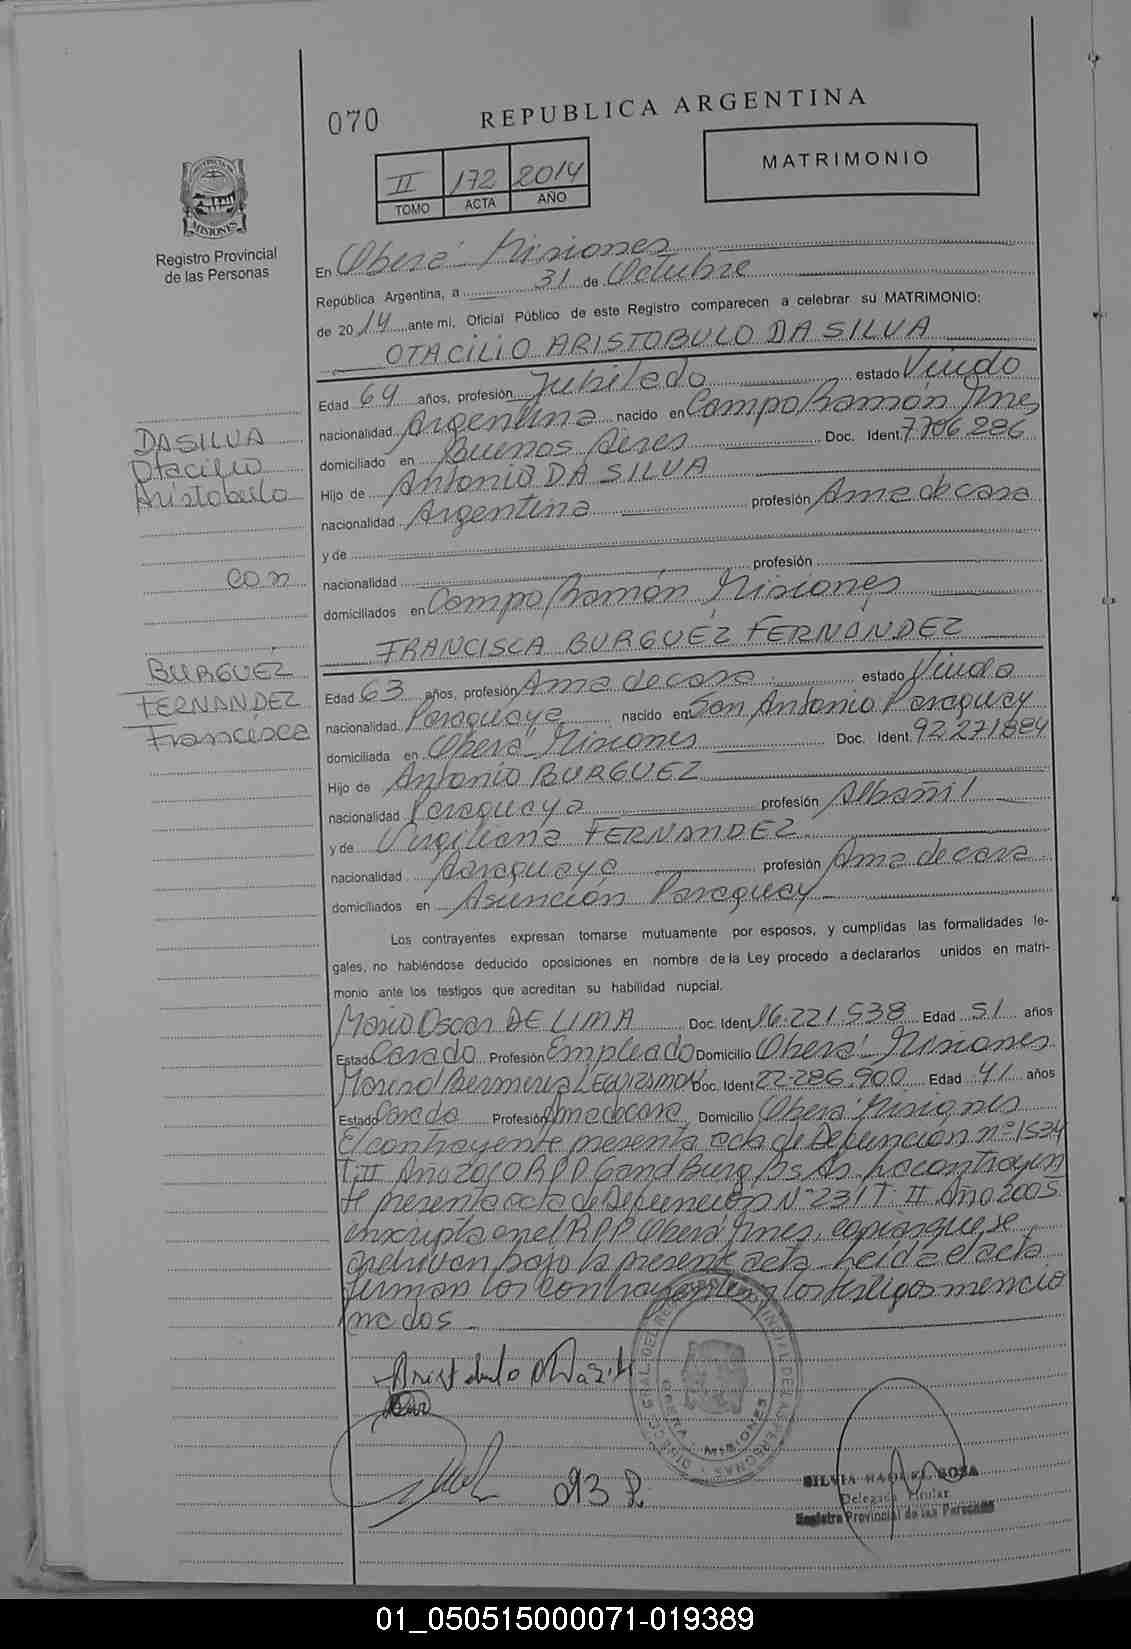 070
REPUBLICA ARGENTINA
II 172 2014
TOMO ACTA AÑO
MATRIMONIO
PROVINCIA DE MISIONES
Registro Provincial
de las Personas
En Oberá Misiones
República Argentina, a 31 de Octubre
de 2014 ante mi, Oficial Público de este Registro comparecen a celebrar su MATRIMONIO:
OTACILIO ARISTOBULO DA SILVA
Edad 64 años, profesión Jubilado estado Viudo
nacionalidad Argentina nacido en Campo Ramón Mnes
domiciliado en Buenos Aires Doc. Ident. 7.706.286
Hijo de Antonio DA SILVA
nacionalidad Argentina profesión Ama de casa
y de
nacionalidad profesión
domiciliados en Campo Ramón Misiones
FRANCISCA BURGUÉZ FERNÁNDEZ
Edad 63 años, profesión Ama de casa estado Viuda
nacionalidad Paraguaya nacido en San Antonio Paraguay
domiciliada en Oberá Misiones Doc. Ident. 92.271.884
Hijo de Antonio BURGUEZ
nacionalidad Paraguaya profesión Albañil
y de Virgiliana FERNANDEZ
nacionalidad Paraguaya profesión Ama de casa
domiciliados en Asunción Paraguay
DA SILVA
Otacilio
Aristobulo
con
BURGUÉZ
FERNANDEZ
Francisca
Los contrayentes expresan tomarse mutuamente por esposos, y cumplidas las formalidades le-
gales, no habiéndose deducido oposiciones en nombre de la Ley procedo a declararlos unidos en matri-
monio ante los testigos que acreditan su habilidad nupcial.
Mario Oscar DE LIMA Doc. Ident. 16.221.538 Edad 51 años
Estado Casado Profesión Empleado Domicilio Oberá Misiones
Doc. Ident. 22.286.900 Edad 41 años
Estado Casada Profesión Ama de casa Domicilio Oberá Misiones
El contrayente presenta acta de Defunción nº 1534
T. II Año 2010 R.P.P Grand Burg Bs As. La contrayen
te presenta acta de Defunción Nº 231 T. II Año 2005
inscripta en el R.P.P Oberá Mnes, copias que se
archivan bajo la presente acta. Leída el acta
firman los contrayentes y los testigos mencio
nados
Silvia Raquel Sosa
Delegada Titular
Registro Provincial de las Personas
01_050515000071-019389